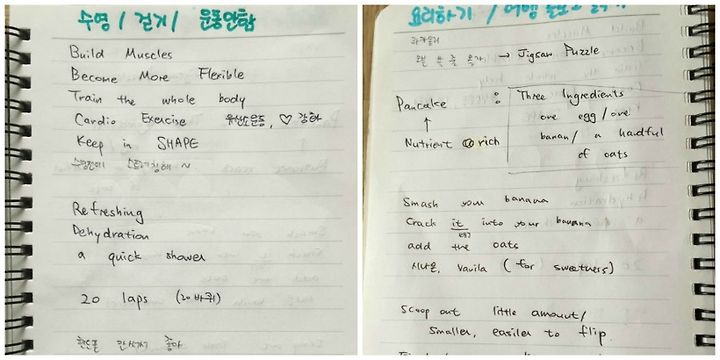 수영 / 걷기 / 운동안함
Build Muscles
Become More Flexible
Train the whole body
Cardio Exercise 유산소운동, ♡ 강화
Keep in SHAPE
수영전에 스트레칭해 ~
Refreshing
Dehydration
a quick shower
20 laps (20 바퀴)
핸드폰 안봐서 좋아
요리하기 / 여행
→ Jigsaw Puzzle
Pancake : Three Ingredients
one egg / one
↑ banan / a hadful
Nutrient rich of oats
Smash your banana
Crack it into your banana
egg
add the oats
시나몬, Vanila (for sweetness)
Scoop out little amount /
smaller, easier to flip.